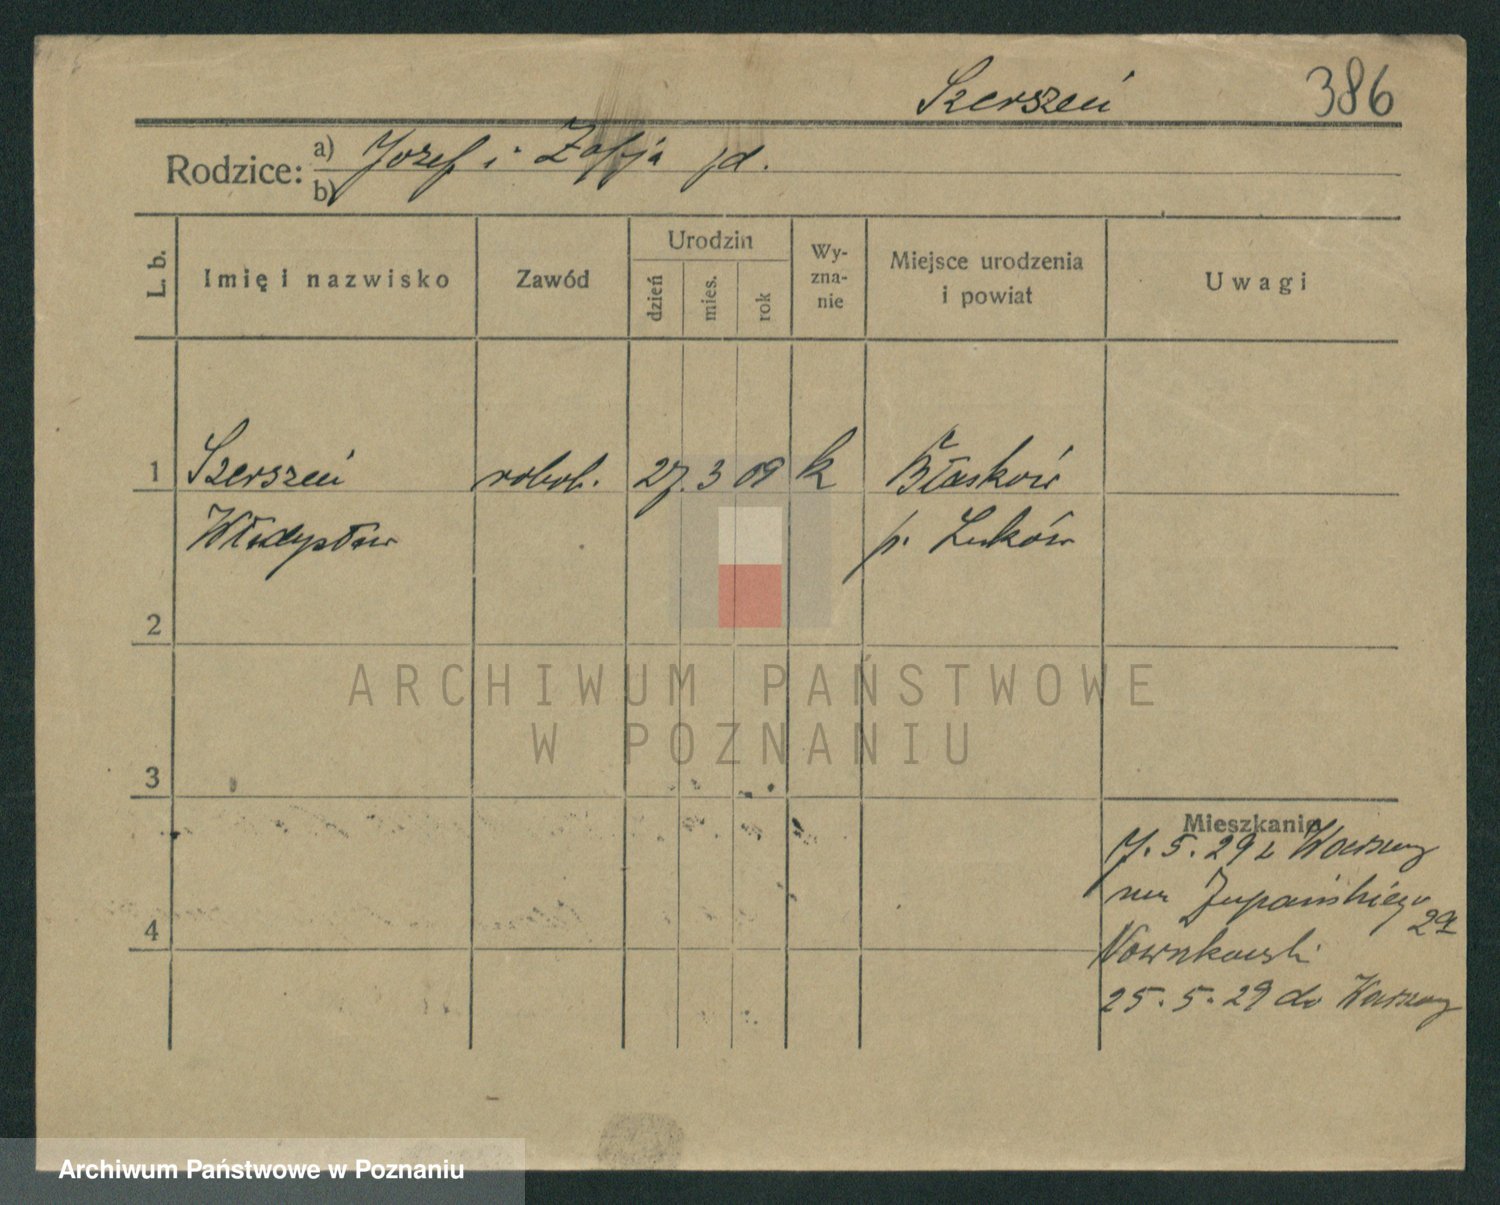 Szerszeń 386
Rodzice: a) Józef i Zofja jd.
b)
L. b. Imię i nazwisko Zawód Urodzin dzień mies. rok Wy-zna-nie Miejsce urodzenia i powiat Uwagi
1 Szerszeń robot. 27. 3 09 k
Władysław p. Łuków
2
ARCHIWUM PAŃSTWOWE
W POZNANIU
3
Mieszkanie
7. 5. 29 z Warszawy
Żupańskiego 29
4
Nowakowski
25. 5. 29 do Warszawy
Archiwum Państwowe w Poznaniu